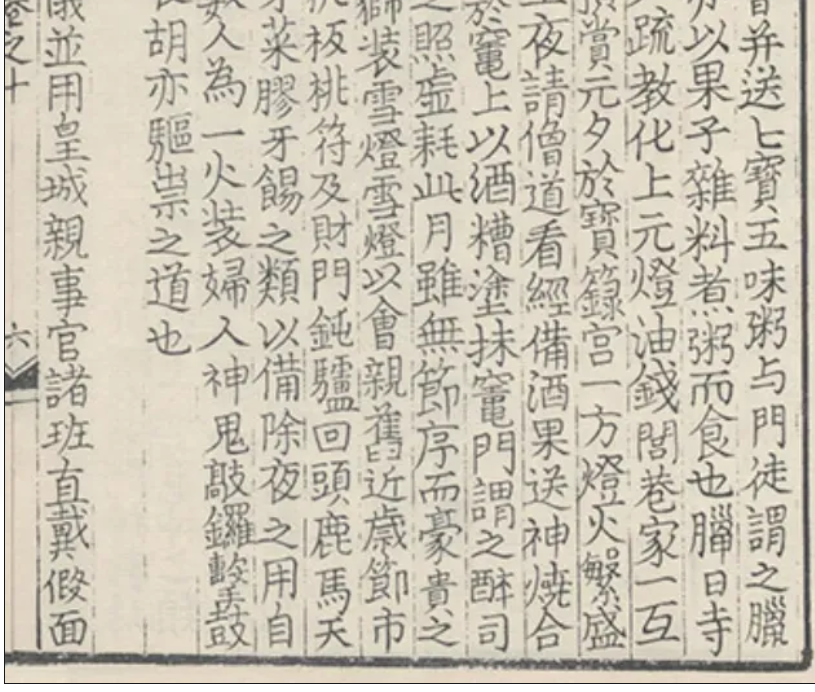 并送七寶五味粥与門徒謂之臘
以果子雜料煮粥而食也臘日寺
疏教化上元燈油錢閭巷家一互
賞元夕於寳籙宫一方燈火繁盛
夜請僧道看經備酒果送神燒合
於竈上以酒糟塗抹竈門謂之醉司
之照虛耗此月雖無節序而豪貴之
獅裝雪燈雪燈以會親舊近歲節市
板桃符及財門鈍驢回頭鹿馬天
牙菜膠牙餳之類以備除夜之用自
數人為一火裝婦人神鬼敲鑼擊鼓
胡亦驅祟之道也
儀並用皇城親事官諸班直戴假面
卷之十
六